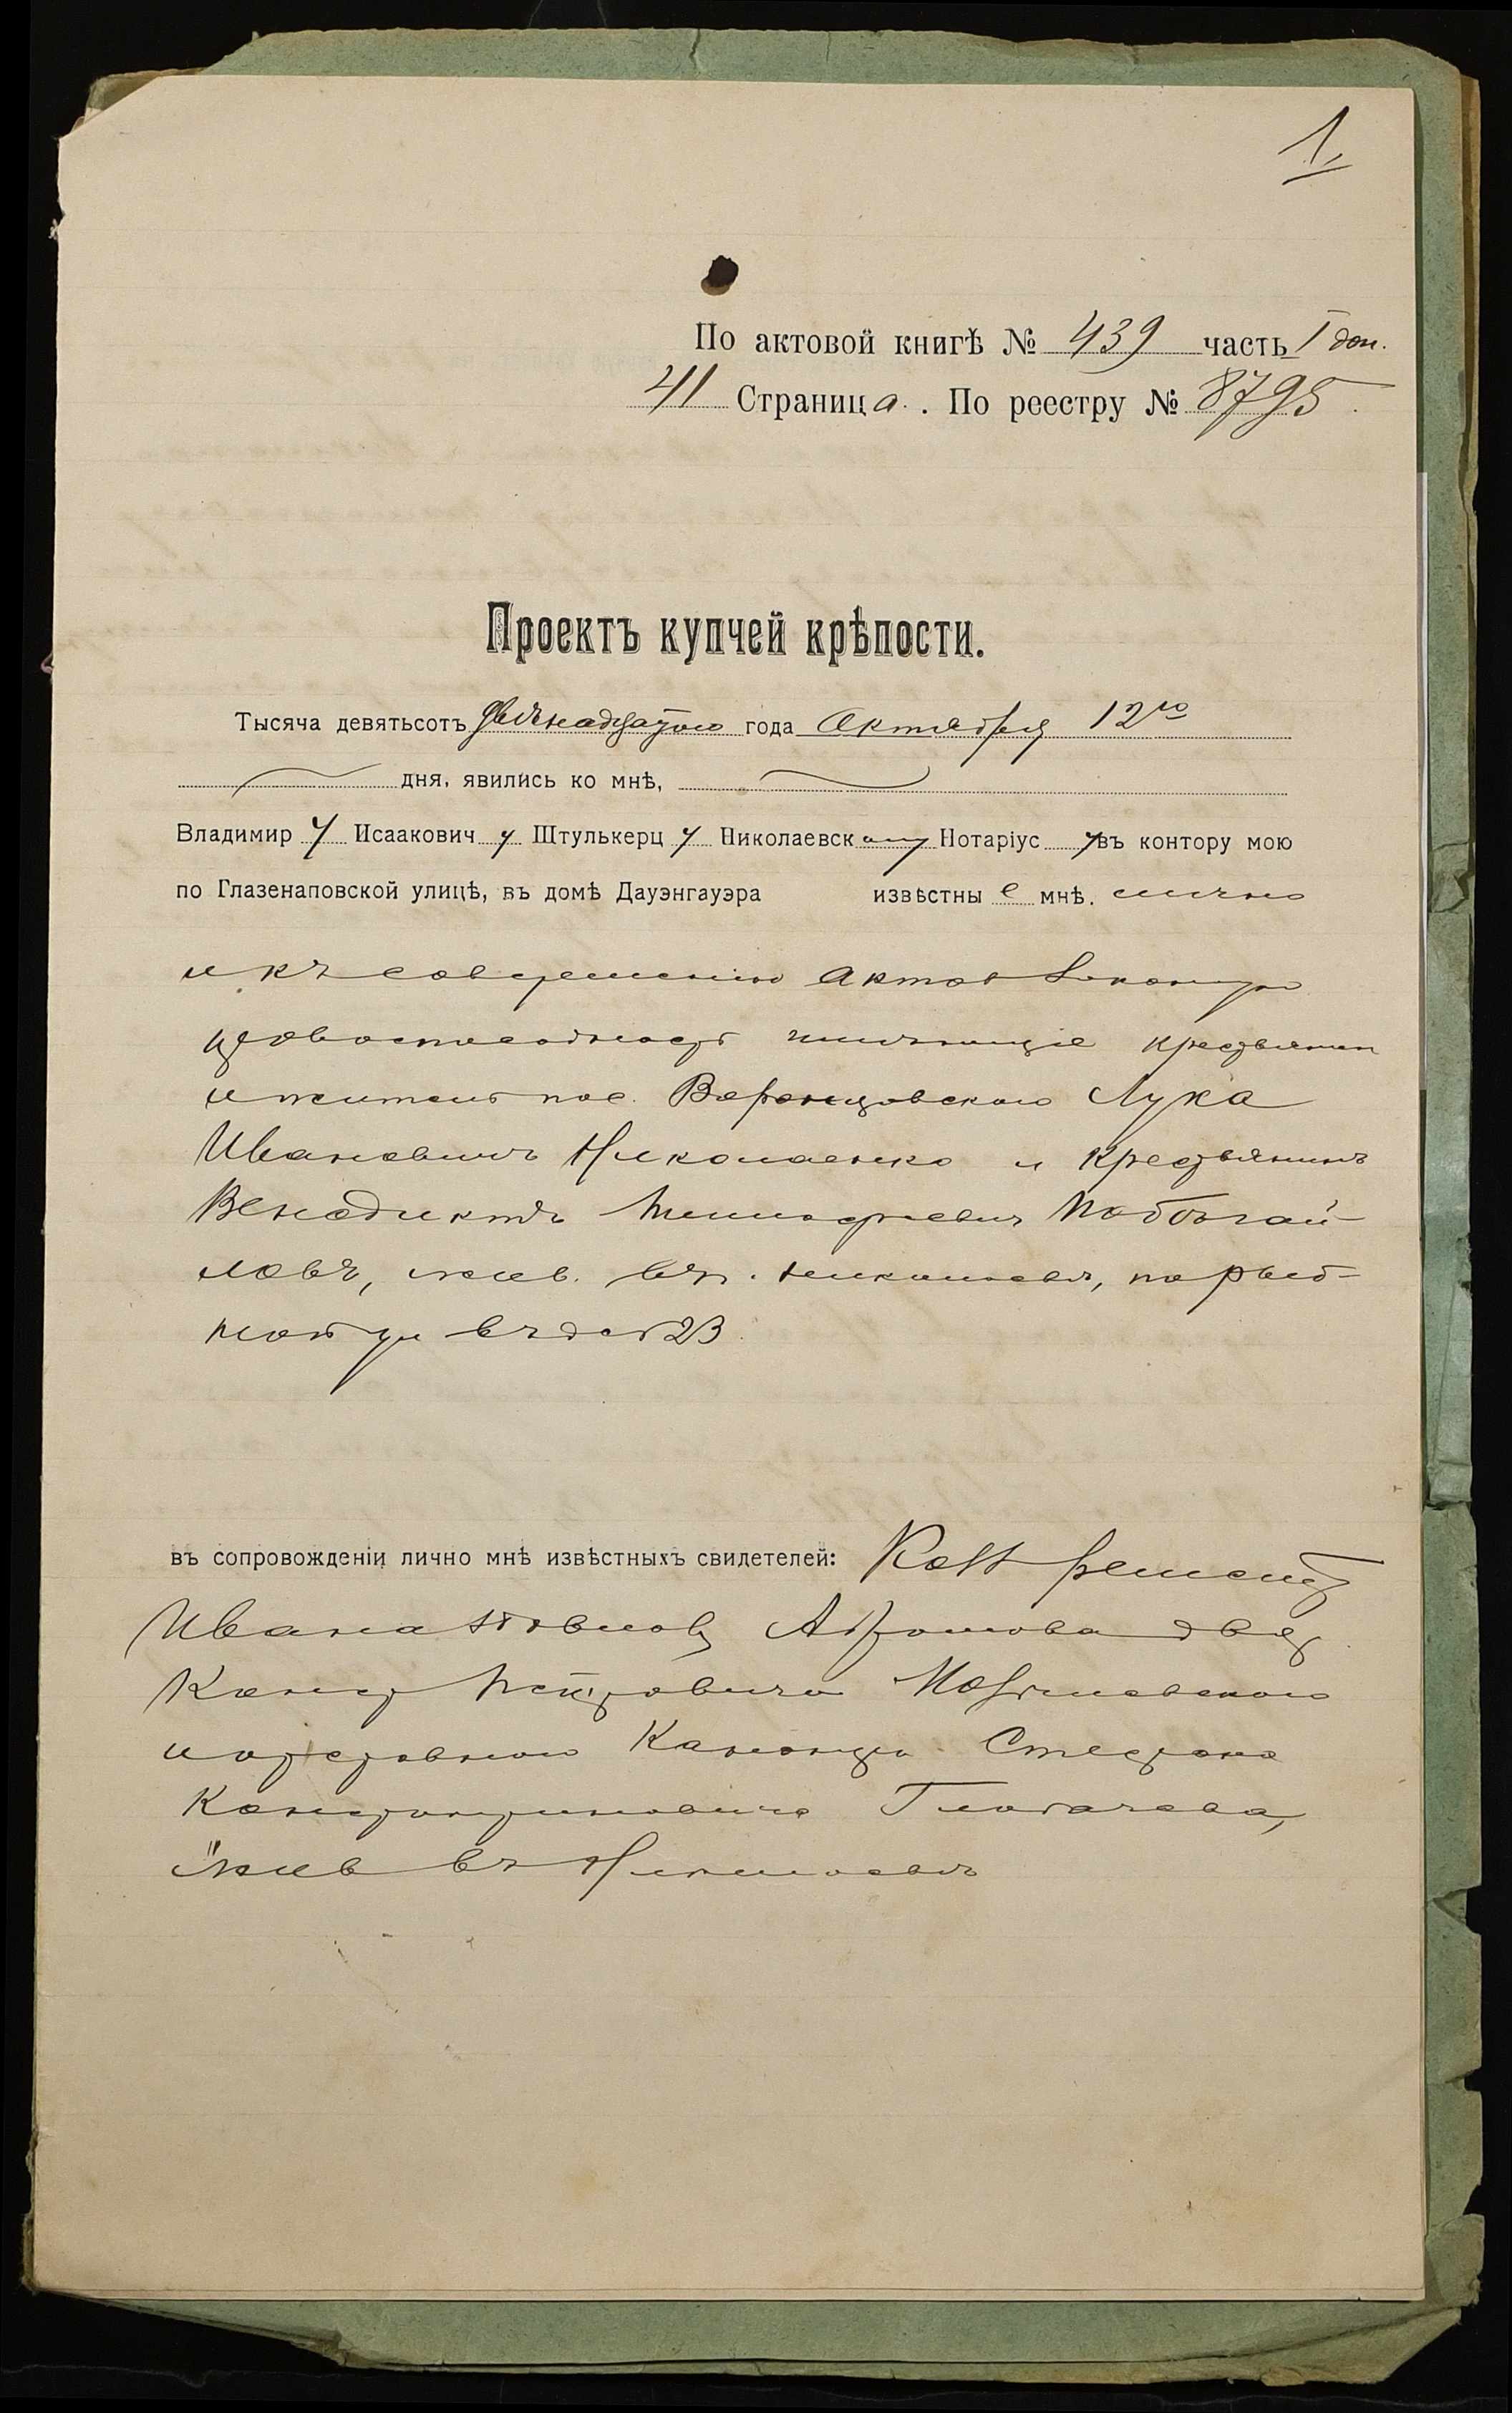 1
По актовой книгѣ № 439 часть I доп.
41 Страница. По реестру № 8795.
Проектъ купчей крѣпости.
Тысяча девятьсотъ двѣнадцатого года Октября 12го
дня, явились ко мнѣ,
Владимиру Исааковичу Штулькерцу Николаевскому Нотаріусу въ контору мою
по Глазенаповской улицѣ, въ домѣ Дауэнгауэра извѣстные мнѣ. лично
и къ совершенію актов законную
правоспособность имѣющіе крестьянин
и житель пос. Воронцовского Лука
Ивановичъ Николаенко и крестьянинъ
Венедиктъ
ловъ, жив. въ г. Николаевѣ, по Рыб-
ной ул въ д № 23
въ сопровожденіи лично мнѣ извѣстныхъ свидетелей:
Ивана
Петровича
и Стефана
Константиновича
жив въ Николаевѣ